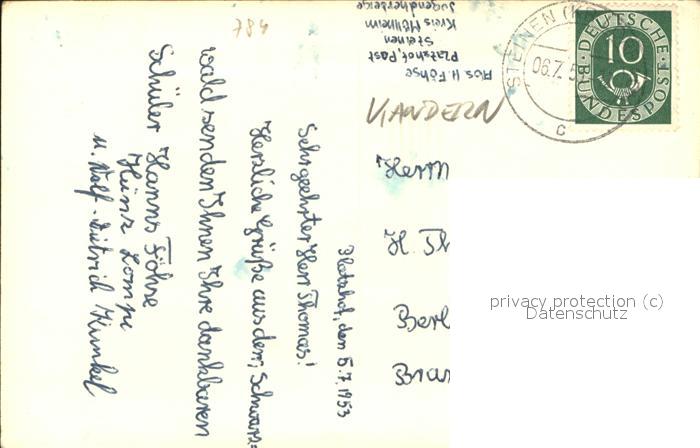 784
Abs. H. Föhse
Platzhof, Post
Steinen
Kreis Müllheim
Jugendherberge
KANDERN
STEINEN (K
06.7.5
c
DEUTSCHE
BUNDESPOST
10
Platzhof, den 5.7.1953
Sehrgeehrter Herr Thomas!
Herzliche Grüße aus dem Schwarz=
wald senden Ihnen Ihre dankbaren
Schüler Hanns Föhse
Heinz
u. Wolf-Dietrich Kunkel
Herrn
H. Th
Berl
Bra
privacy protection (c)
Datenschutz